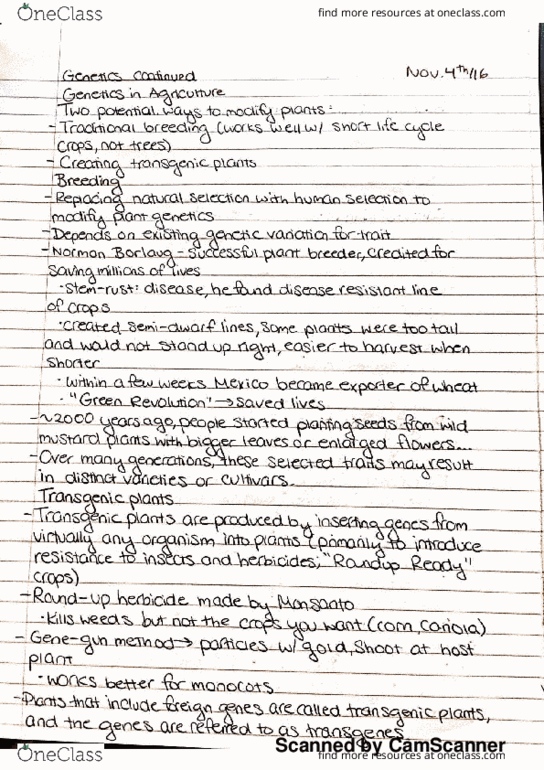 OneClass
find more resources at oneclass.com
Genetics continued Nov. 4th/16
Genetics in Agriculture
Two potential ways to modify plants:
- Traditional breeding (works well w/ short life cycle
crops, not trees)
- Creating transgenic plants
Breeding
- Replacing natural selection with human selection to
modify plant genetics
- Depends on existing genetic variation for trait
- Norman Borlaug - successful plant breeder, credited for
saving millions of lives
· Stem-rust: disease, he found disease resistant line
of crops
· created semi-dwarf lines, some plants were too tall
and would not stand up right, easier to harvest when
shorter
· within a few weeks Mexico became exporter of wheat
· "Green Revolution" → saved lives
- ~2000 years ago, people started planting seeds from wild
mustard plants with bigger leaves or enlarged flowers...
- Over many generations, these selected traits may result
in distinct varieties or cultivars.
Transgenic plants
- Transgenic plants are produced by inserting genes from
virtually any organism into plants (primarily to introduce
resistance to insects and herbicides; "Roundup Ready"
crops)
- Round-up herbicide made by Monsanto
· kills weeds but not the crops you want (corn, canola)
- Gene-gun method → particles w/ gold, shoot at host
plant
· works better for monocots
- Plants that include foreign genes are called transgenic plants,
and the genes are referred to as transgenes
Scanned by CamScanner
OneClass
find more resources at oneclass.com